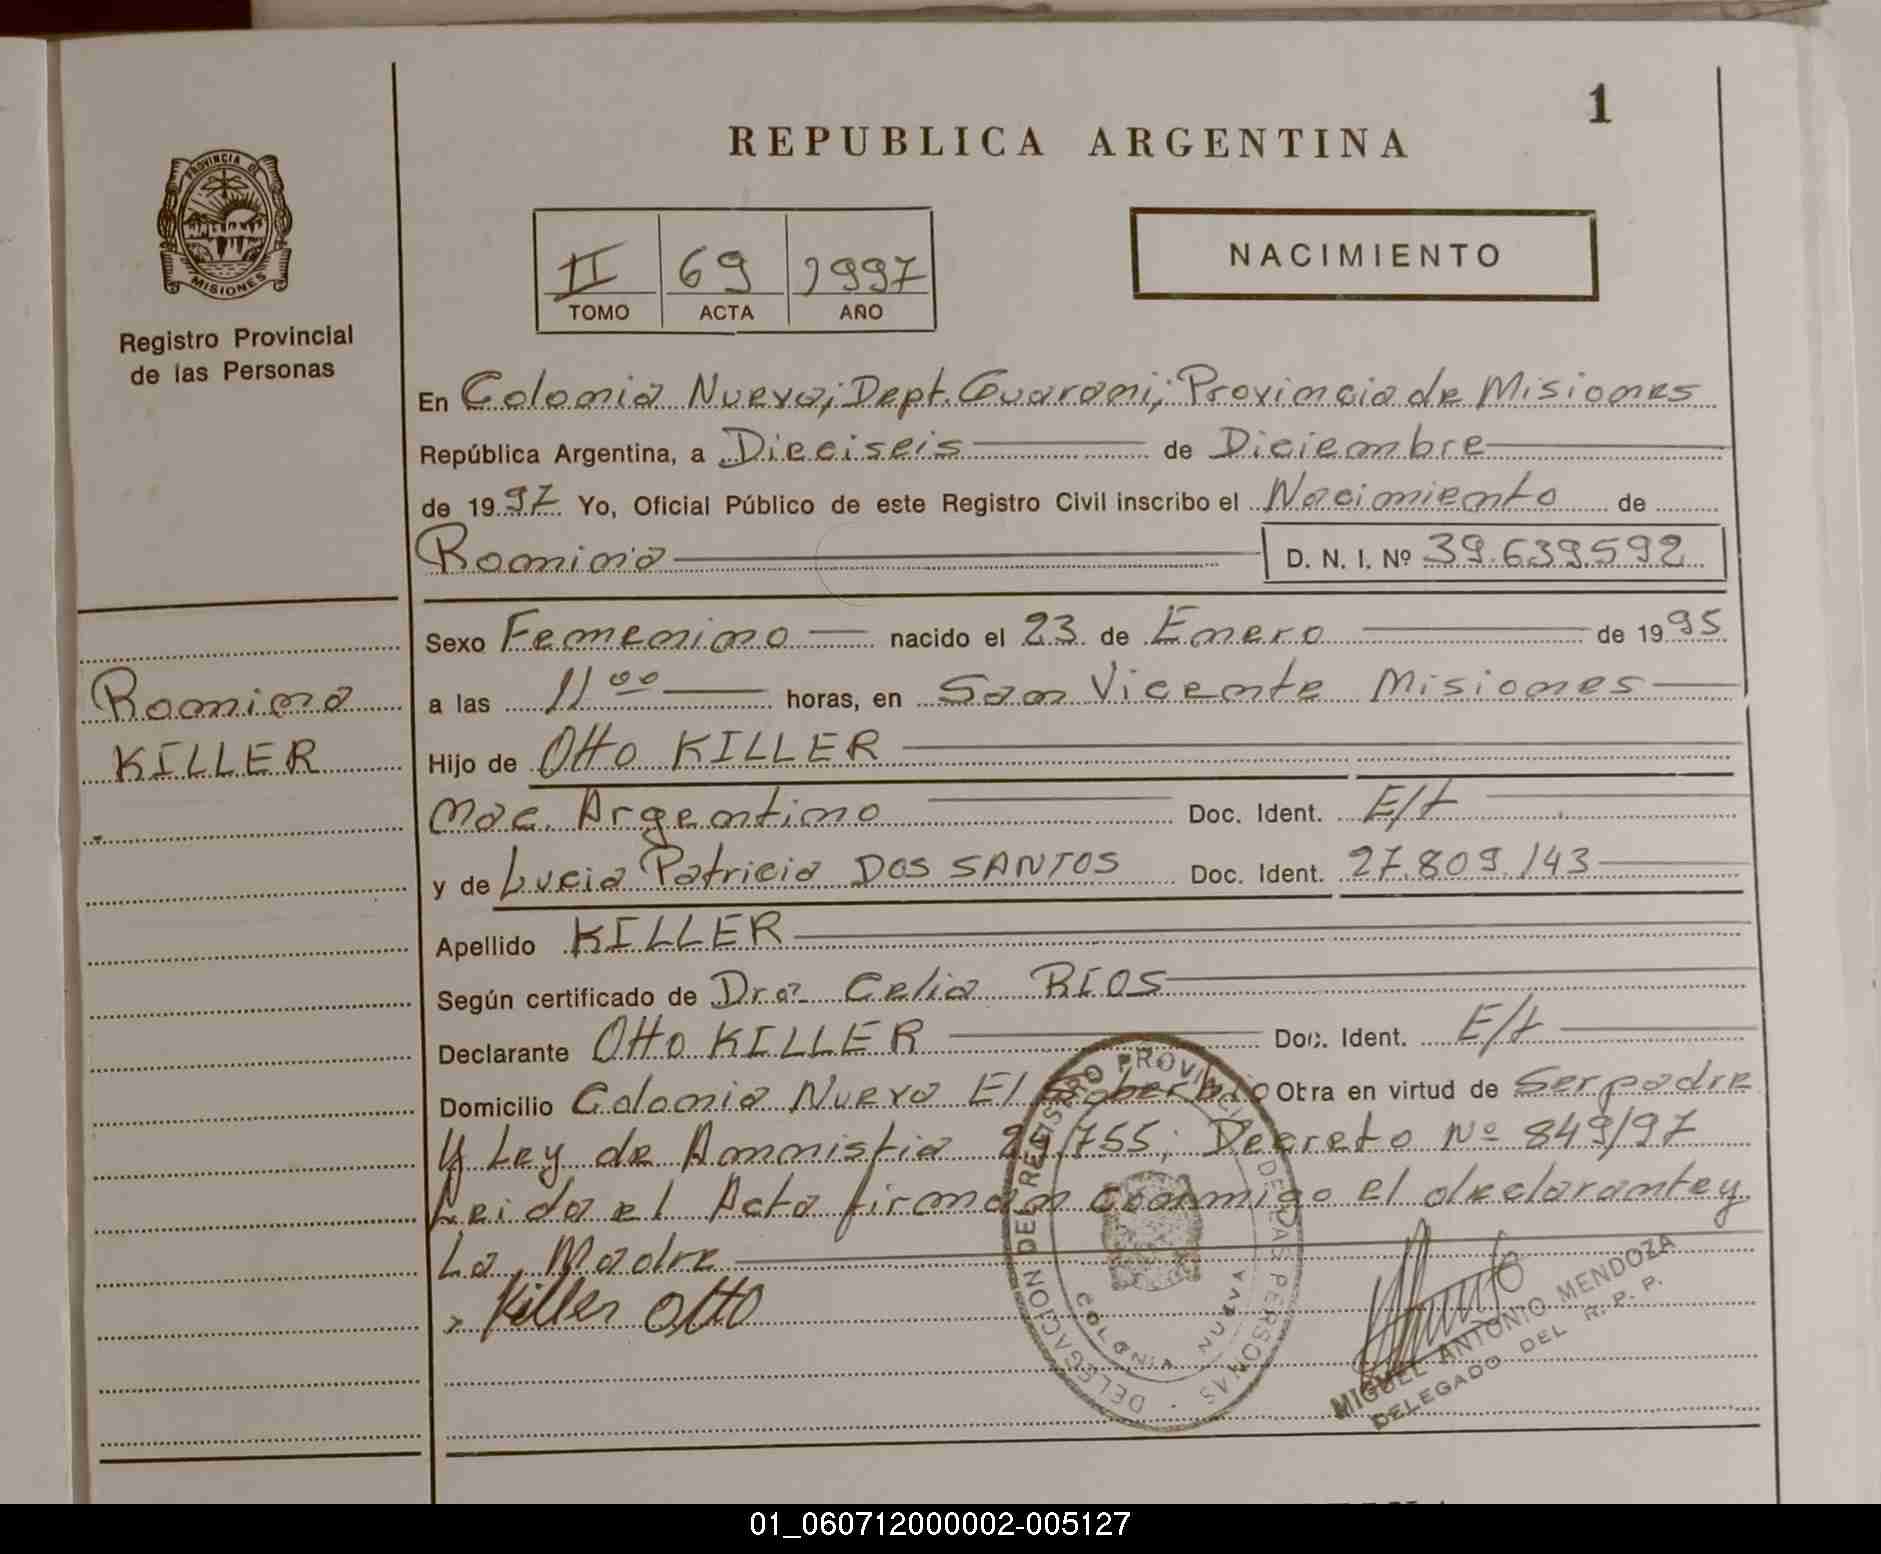 1
REPUBLICA ARGENTINA
PROVINCIA DE
MISIONES
Registro Provincial
de las Personas
II 69 1997
TOMO ACTA AÑO
NACIMIENTO
En Colonia Nueva; Dept. Guarani; Provincia de Misiones
República Argentina, a Dieciseis de Diciembre
de 1997 Yo, Oficial Público de este Registro Civil inscribo el Nacimiento de
Romina D. N. I. Nº 39.639.592
Sexo Femenino nacido el 23 de Enero de 1995
Romina
a las 11 00 horas, en San Vicente Misiones
KILLER
Hijo de Otto KILLER
Nac. Argentino Doc. Ident. E/t
y de Lucia Patricia DOS SANTOS Doc. Ident. 27.809.143
Apellido KILLER
Según certificado de Dra. Celia RIOS
Declarante Otto KILLER Doc. Ident. E/t
Domicilio Colonia Nueva El Soberbio Obra en virtud de Ser padre
y Ley de Amnistia 24.755; Decreto Nº 849/97
Leida el Acta firman conmigo el declarante y
La Madre
Killer Otto
DELEGACION DEL REGISTRO PROVINCIAL DE LAS PERSONAS
COLONIA NUEVA
MIGUEL ANTONIO MENDOZA
DELEGADO DEL R. P. P.
01_060712000002-005127